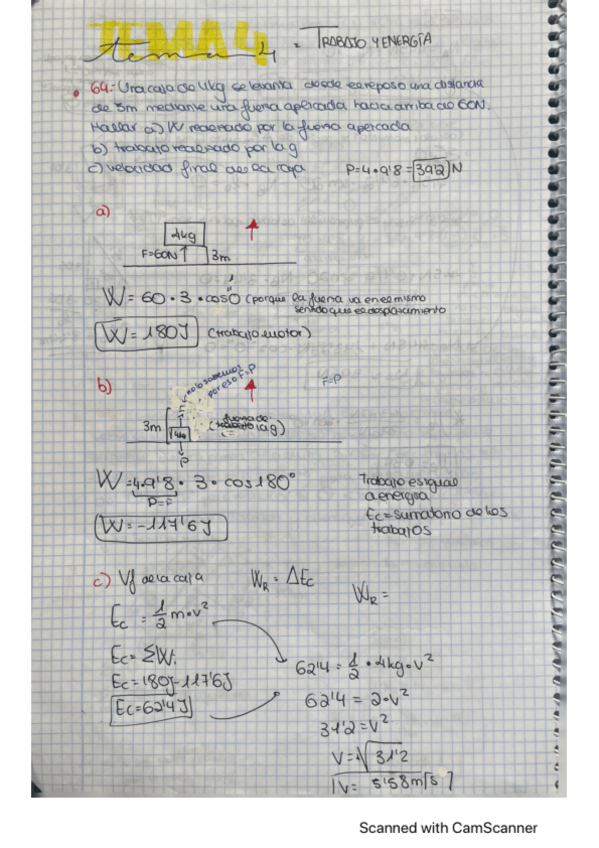 TEMA 4
tema 4 = TRABAJO Y ENERGÍA
64.- Una caja de 4kg se levanta desde el reposo una distancia
de 3m mediante una fuerza aplicada hacia arriba de 60N.
Hallar a) W realizado por la fuerza aplicada
b) trabajo realizado por la g
c) velocidad final de la caja P=4·9'8=39'2 N
a)
4kg
F=60N 3m
1
W = 60·3·cos0 (porque la fuerza va en el mismo
sentido que el desplazamiento
W=180J (trabajo motor)
no lo sabemos
por eso F=P
b) F=P
3m 4kg (fuerza de trabajo la g)
P
W=4·9'8·3·cos180° Trabajo es igual
P=F a energía
W=-117'6J Ec=sumatorio de los
trabajos
c) Vf de la caja WR = ΔEc WR =
Ec = 1/2 m·v²
Ec= ΣW. 62'4 = 1/2 · 4kg·v²
Ec=180J-117'6J 62'4 = 2·v²
Ec=62'4J 31'2=v²
V=√31'2
V= 5'58m/s
Scanned with CamScanner